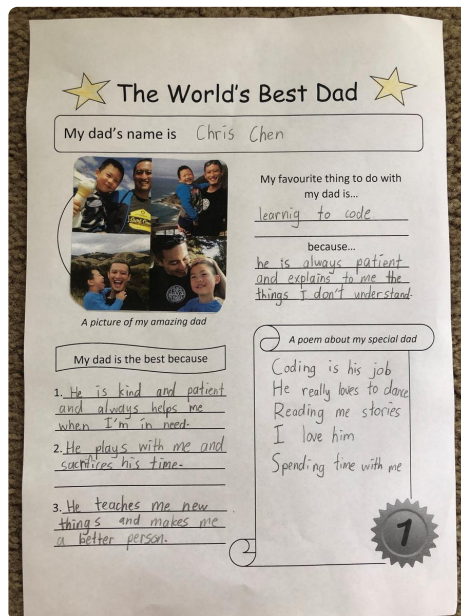 The World's Best Dad
My dad's name is Chris Chen
A picture of my amazing dad
My favourite thing to do with
my dad is...
learnig to code
because...
he is always patient
and explains to me the
things I don't understand.
My dad is the best because
1. He is kind and patient
and always helps me
when I'm in need.
2. He plays with me and
sacrifices his time.
3. He teaches me new
things and makes me
a better person.
A poem about my special dad
Coding is his job
He really loves to dance
Reading me stories
I love him
Spending time with me
1